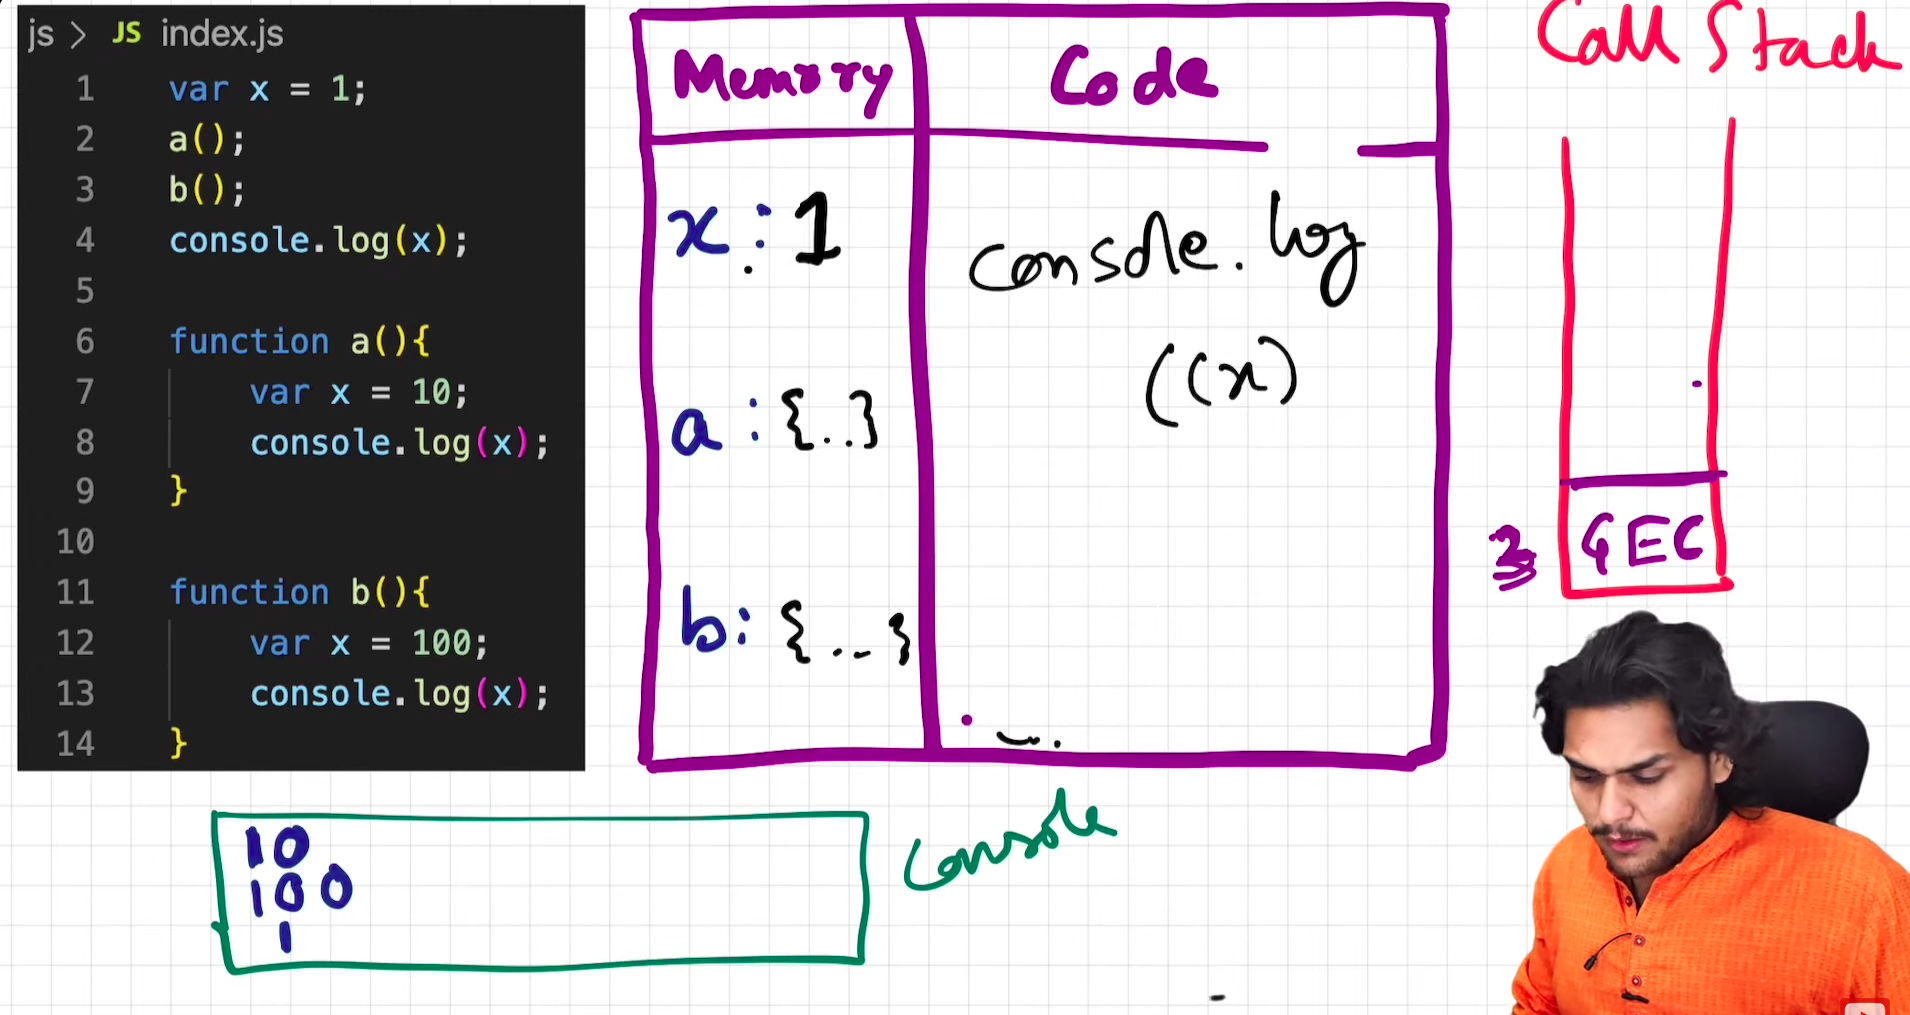 js > JS index.js
1 var x = 1;
2 a();
3 b();
4 console.log(x);
5
6 function a(){
7 var x = 10;
8 console.log(x);
9 }
10
11 function b(){
12 var x = 100;
13 console.log(x);
14 }
Memory
Code
x : 1
a : {..}
b: {...}
console.log
((x)
Call Stack
GEC
10
100
1
Console